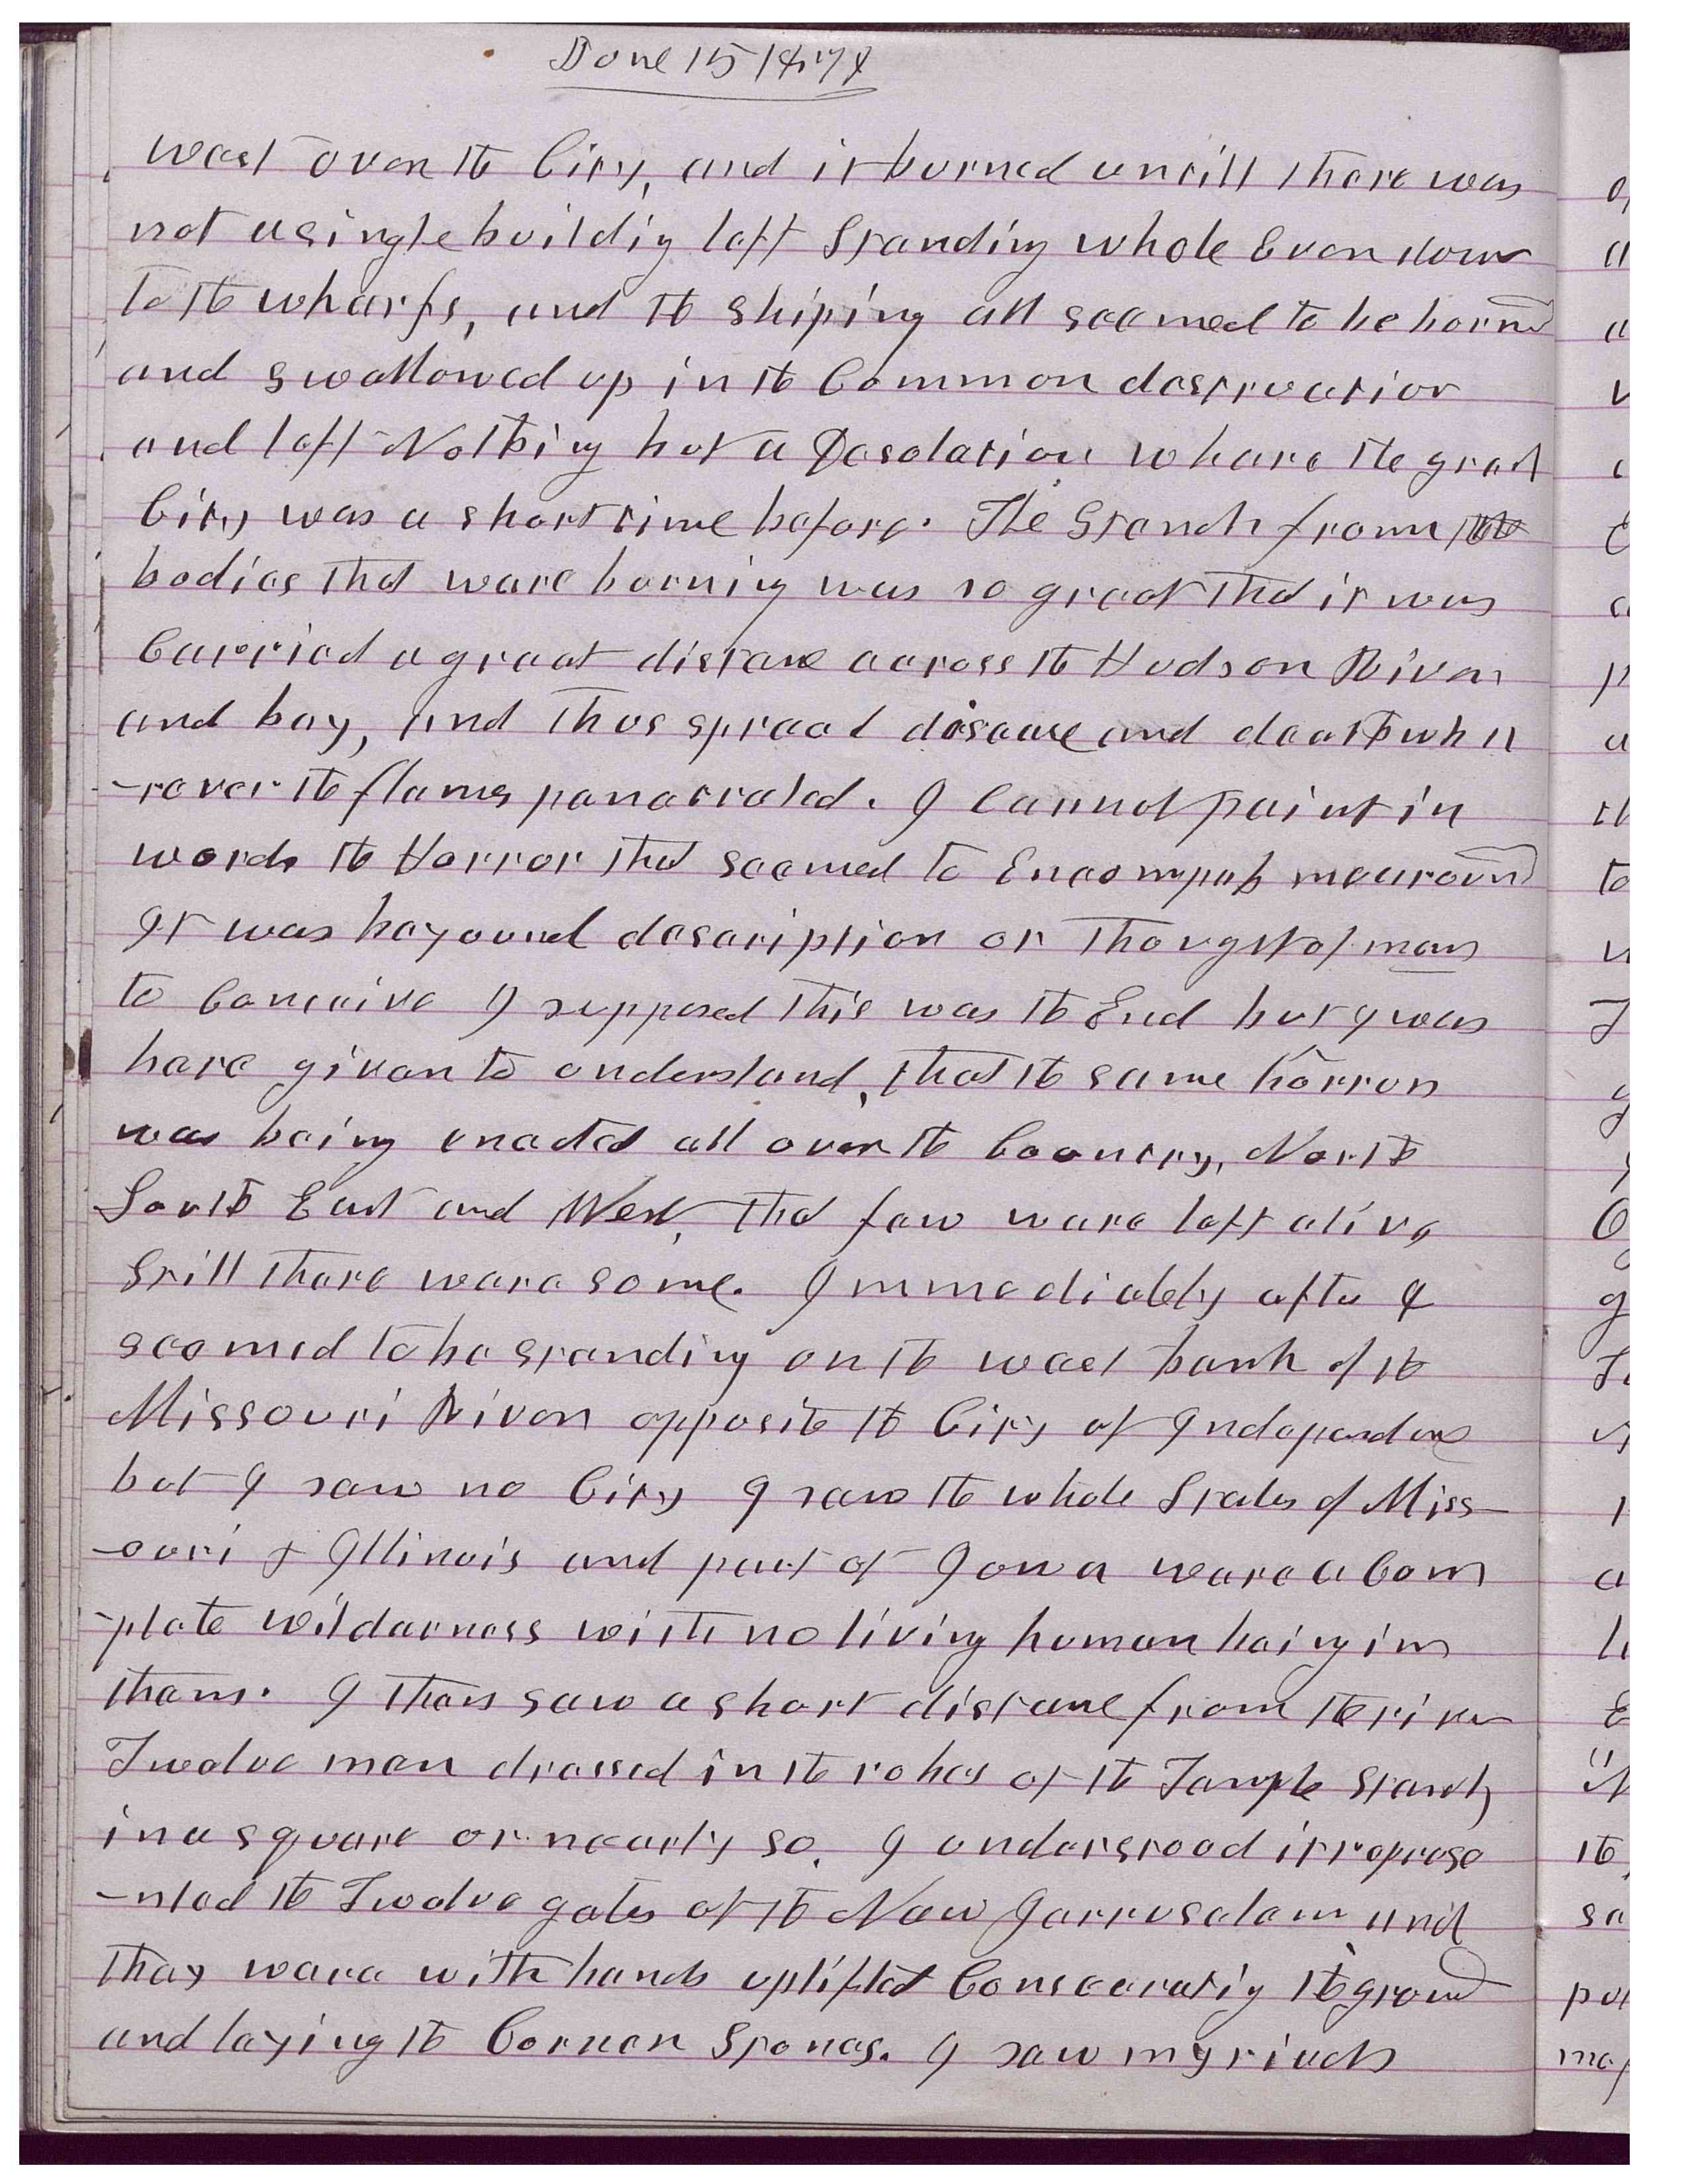 June 15 1878
west over the City, and it burned untill there was
not a single buildig left Standing whole Even down
to the wharfs, and the shiping all seemed to be burned
and swallowed up in the Common destruction
and left Nothing but a Desolation whare the great
City was a short time before. The Stench from the
bodies that ware burnig was so great that it was
Carried a great distance across the Hudson River
and bay, and thus spread disease and death whe
-rever the flames penatrated. I Cannot paint in
words the Horror that seemed to Encompass me around
It was beyound description or thought of man
to Conceive I supposed this was the End but I was
here given to understand, that the same horror
was being enacted all over the Country, North
South East and West, that few ware left alive
Still there ware some. Immediately after I
seemed to be standing on the west bank of the
Missouri River opposite the City of Independence
but I saw no City I saw the whole States of Miss-
-ouri & Illinois and part of Iowa ware a Com
-plete wilderness with no living human being in
them. I then saw a short distance from the river
Twelve men dressed in the robes of the Temple Standing
in a square or nearly so. I understood it represe
-nted the Twelve gates of the New Jerrusalem and
they ware with hands uplifted Consecratig the ground
and laying the Corner Stones. I saw myriads